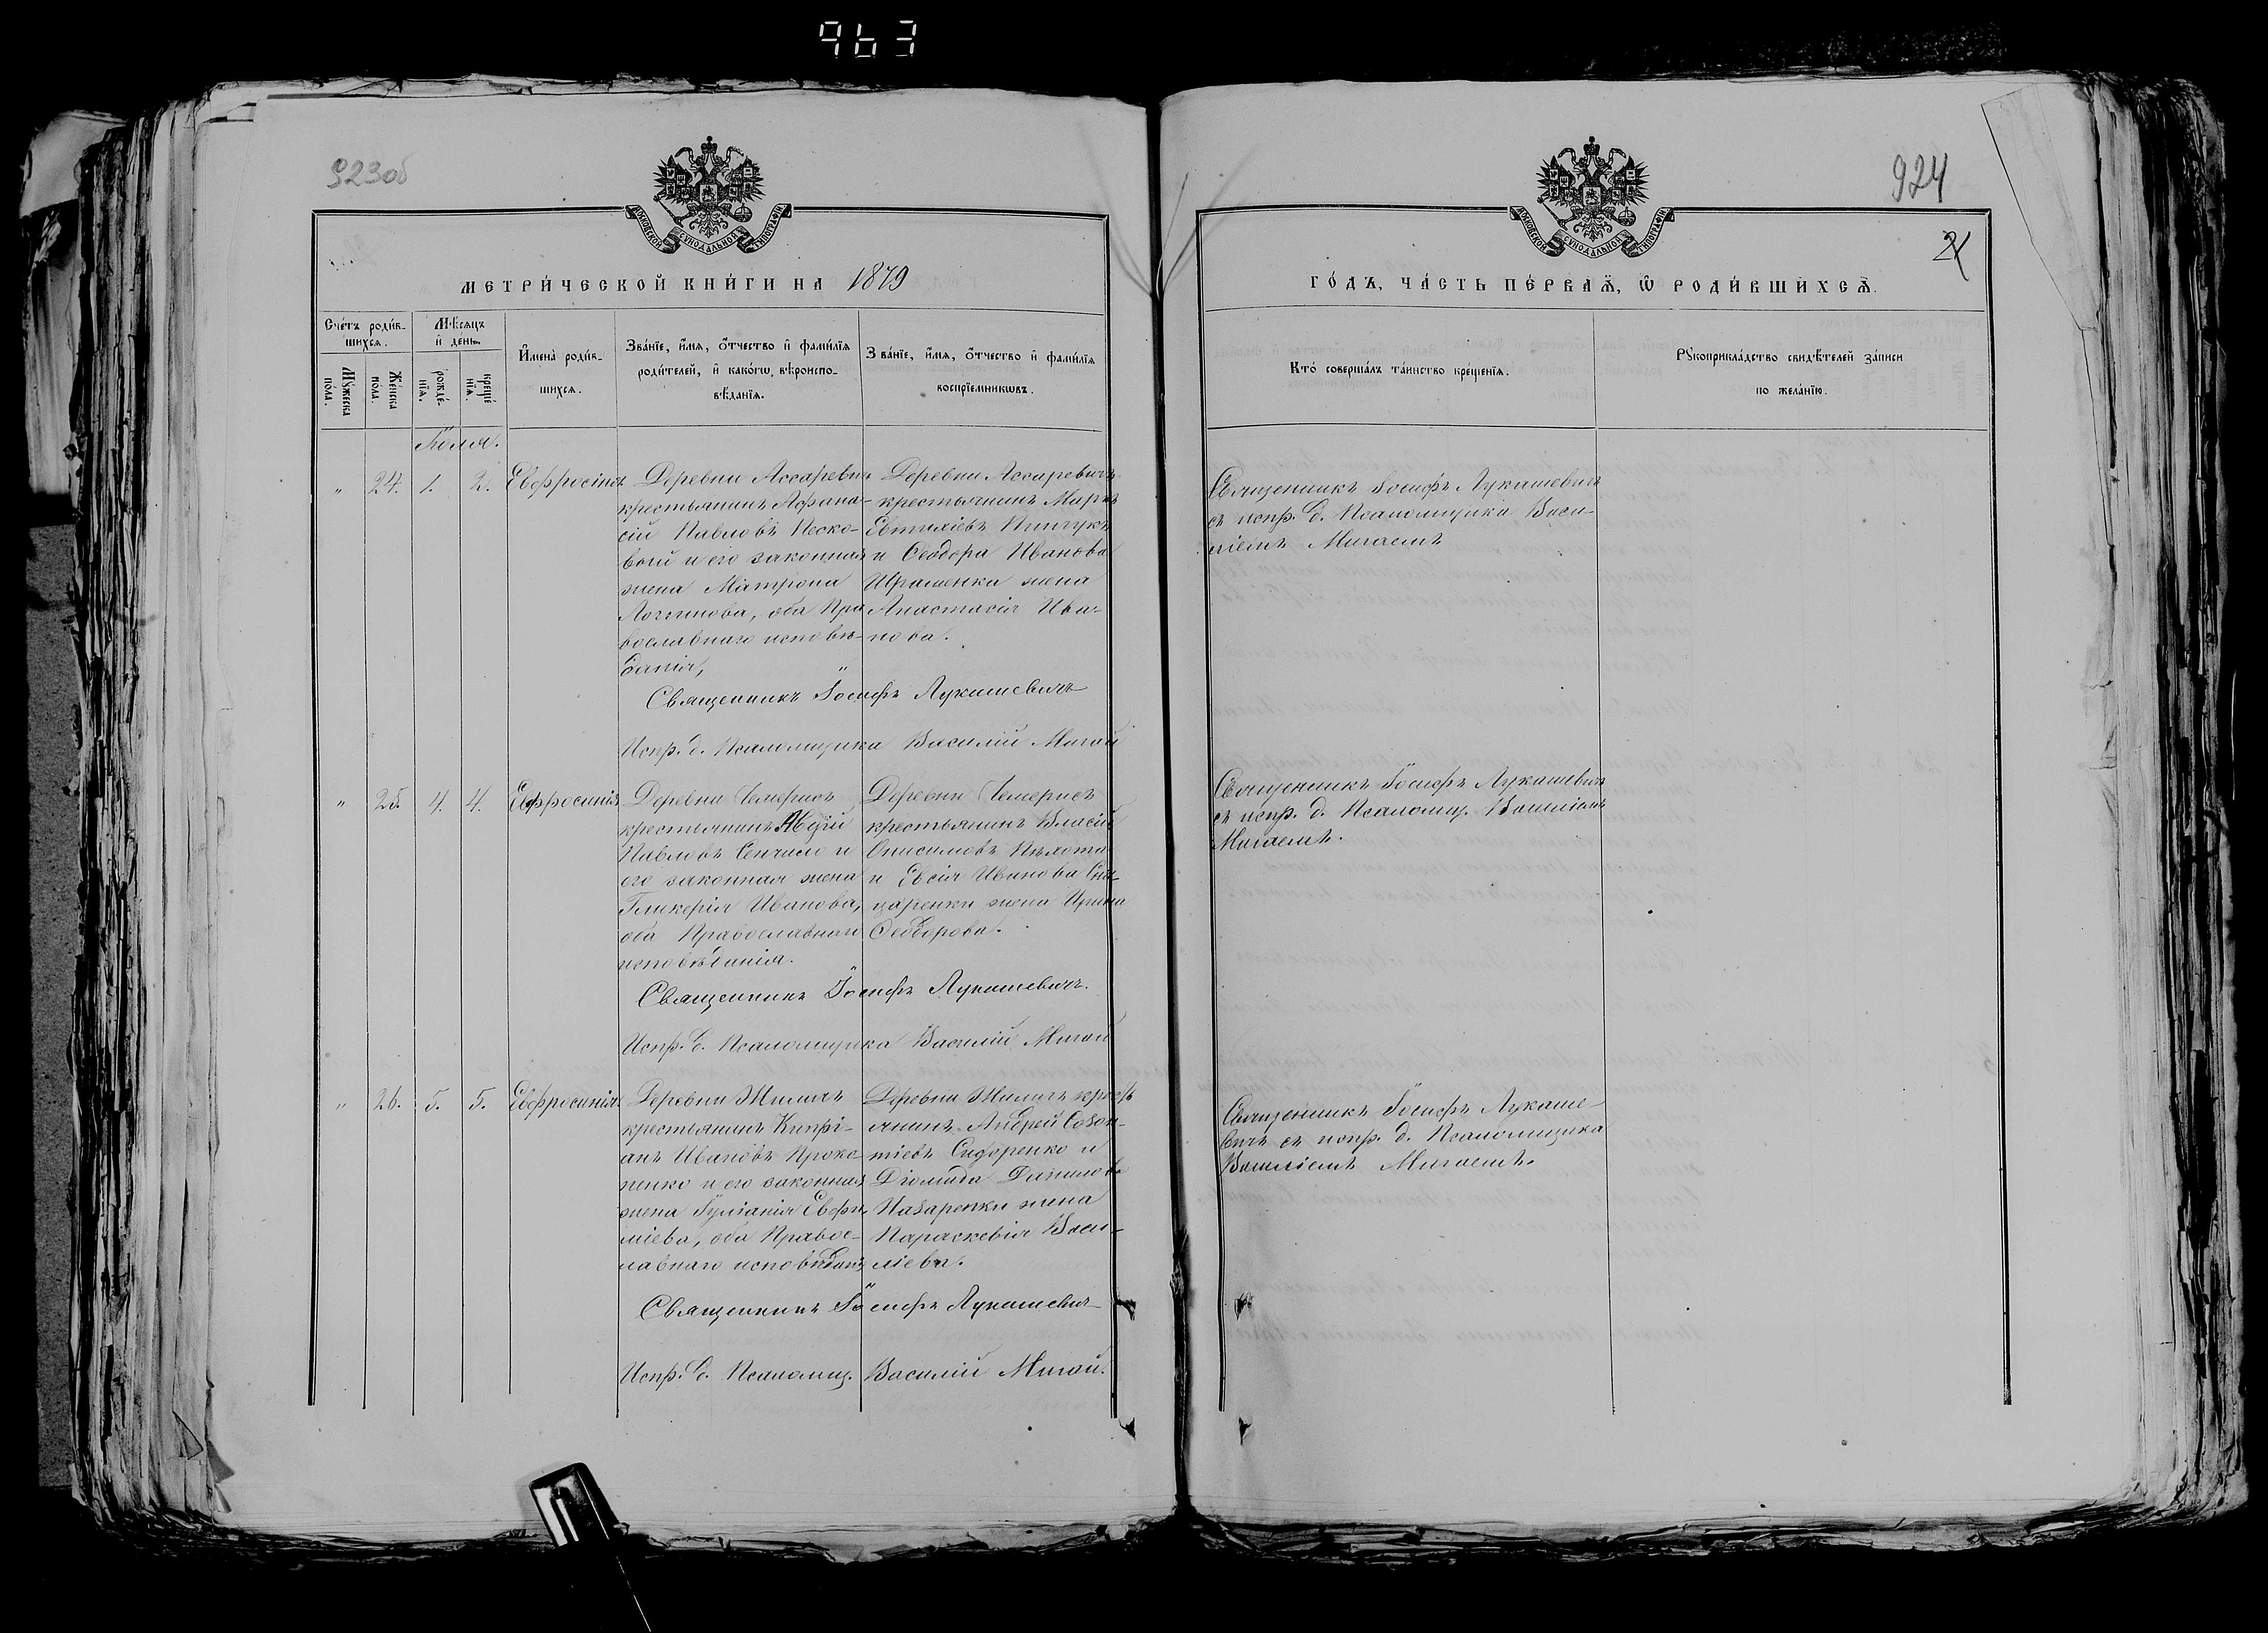 963
923об
МОСКОВСКОЙ СУНОДАЛЬНОЙ ТИПОГРАФІИ
МЕТРИ́ЧЕСКОЙ КНИ́ГИ НА 1879
Сче́тъ роди́в-
шихся.
Мѣсяцъ
и҆ де́нь.
Мꙋ́жеска
по́ла.
Же́нска
по́ла.
рожде́-
нїя.
креще́-
нїя.
И҆мена̀ роди́в-
шихся.
Зва́нїе, и҆́мя, ѻ҆́тчество и҆ фами́лїя
роди́телей, и҆ како́гѡ вѣроиспо-
вѣ́данїя.
Зва́нїе, и҆́мя, ѻ҆́тчество и҆ фами́лїя
воспрїе́мникѡвъ.
Іюля.
" 24. 1. 2. Евфросинія
Деревни Ассаревич
крестьянинъ Афана-
сій Павловъ Песко-
вый и его законная
жена Матрона
Логинова, оба Пра
вославнаго исповѣ-
данія,
Деревни Ассаревичъ
крестьянинъ Маркъ
Евтихіевъ Пинчукъ
и Ѳеодора Иванова
жена
Анастасія Ива-
нова.
Священникъ Іосифъ Лукашевичъ
Испр. д. Псаломщика Василій Мигай
" 25. 4. 4. Евфросинія
Деревни Чемерисъ
крестьянинъ
Павловъ и
его законная жена
Гликерія Иванова,
оба Православнаго
исповѣданія.
Деревни Чемерисъ
крестьянинъ Власій
Онисимовъ Пѣхота
и Евсія Иванова
жена Ирина
Ѳеодорова.
Священникъ Іосифъ Лукашевичъ.
Испр. д. Псаломщика Василій Мигай
" 26. 5. 5. Евфросинія
Деревни Жиличъ
крестьянинъ Кипрі-
анъ Ивановъ Проко-
пенко и его законная
жена Іуліанія Евфи-
міева, оба Правос-
лавнаго исповѣданія
Деревни Жиличъ кресть
янинъ Андрей Созон-
тіевъ Сидоренко и
Діомида Данилова
Назаренки жена
Параскевія Васи-
ліева.
Священникъ Іосифъ Лукашевичъ
Испр. д. Псаломщ. Василій Мигай.
924
2
МОСКОВСКОЙ СУНОДАЛЬНОЙ ТИПОГРАФІИ
ГО́ДЪ, ЧА́СТЬ ПЕ́РВАѦ, Ѽ РОДИ́ВШИХСѦ.
Кто̀ соверша́лъ та́инство креще́нїя.
Рꙋкоприкла́дство свидѣ́телей за́писи
по жела́нїю.
Священникъ Іосифъ Лукашевичъ
съ испр. д. Псаломщика Васи-
ліемъ Мигаемъ
Священникъ Іосифъ Лукашевичъ
съ испр. д. Псаломщ. Василіемъ
Мигаемъ.
Священникъ Іосифъ Лукаше-
вичъ съ испр. д. Псаломщика
Василіемъ Мигаемъ.